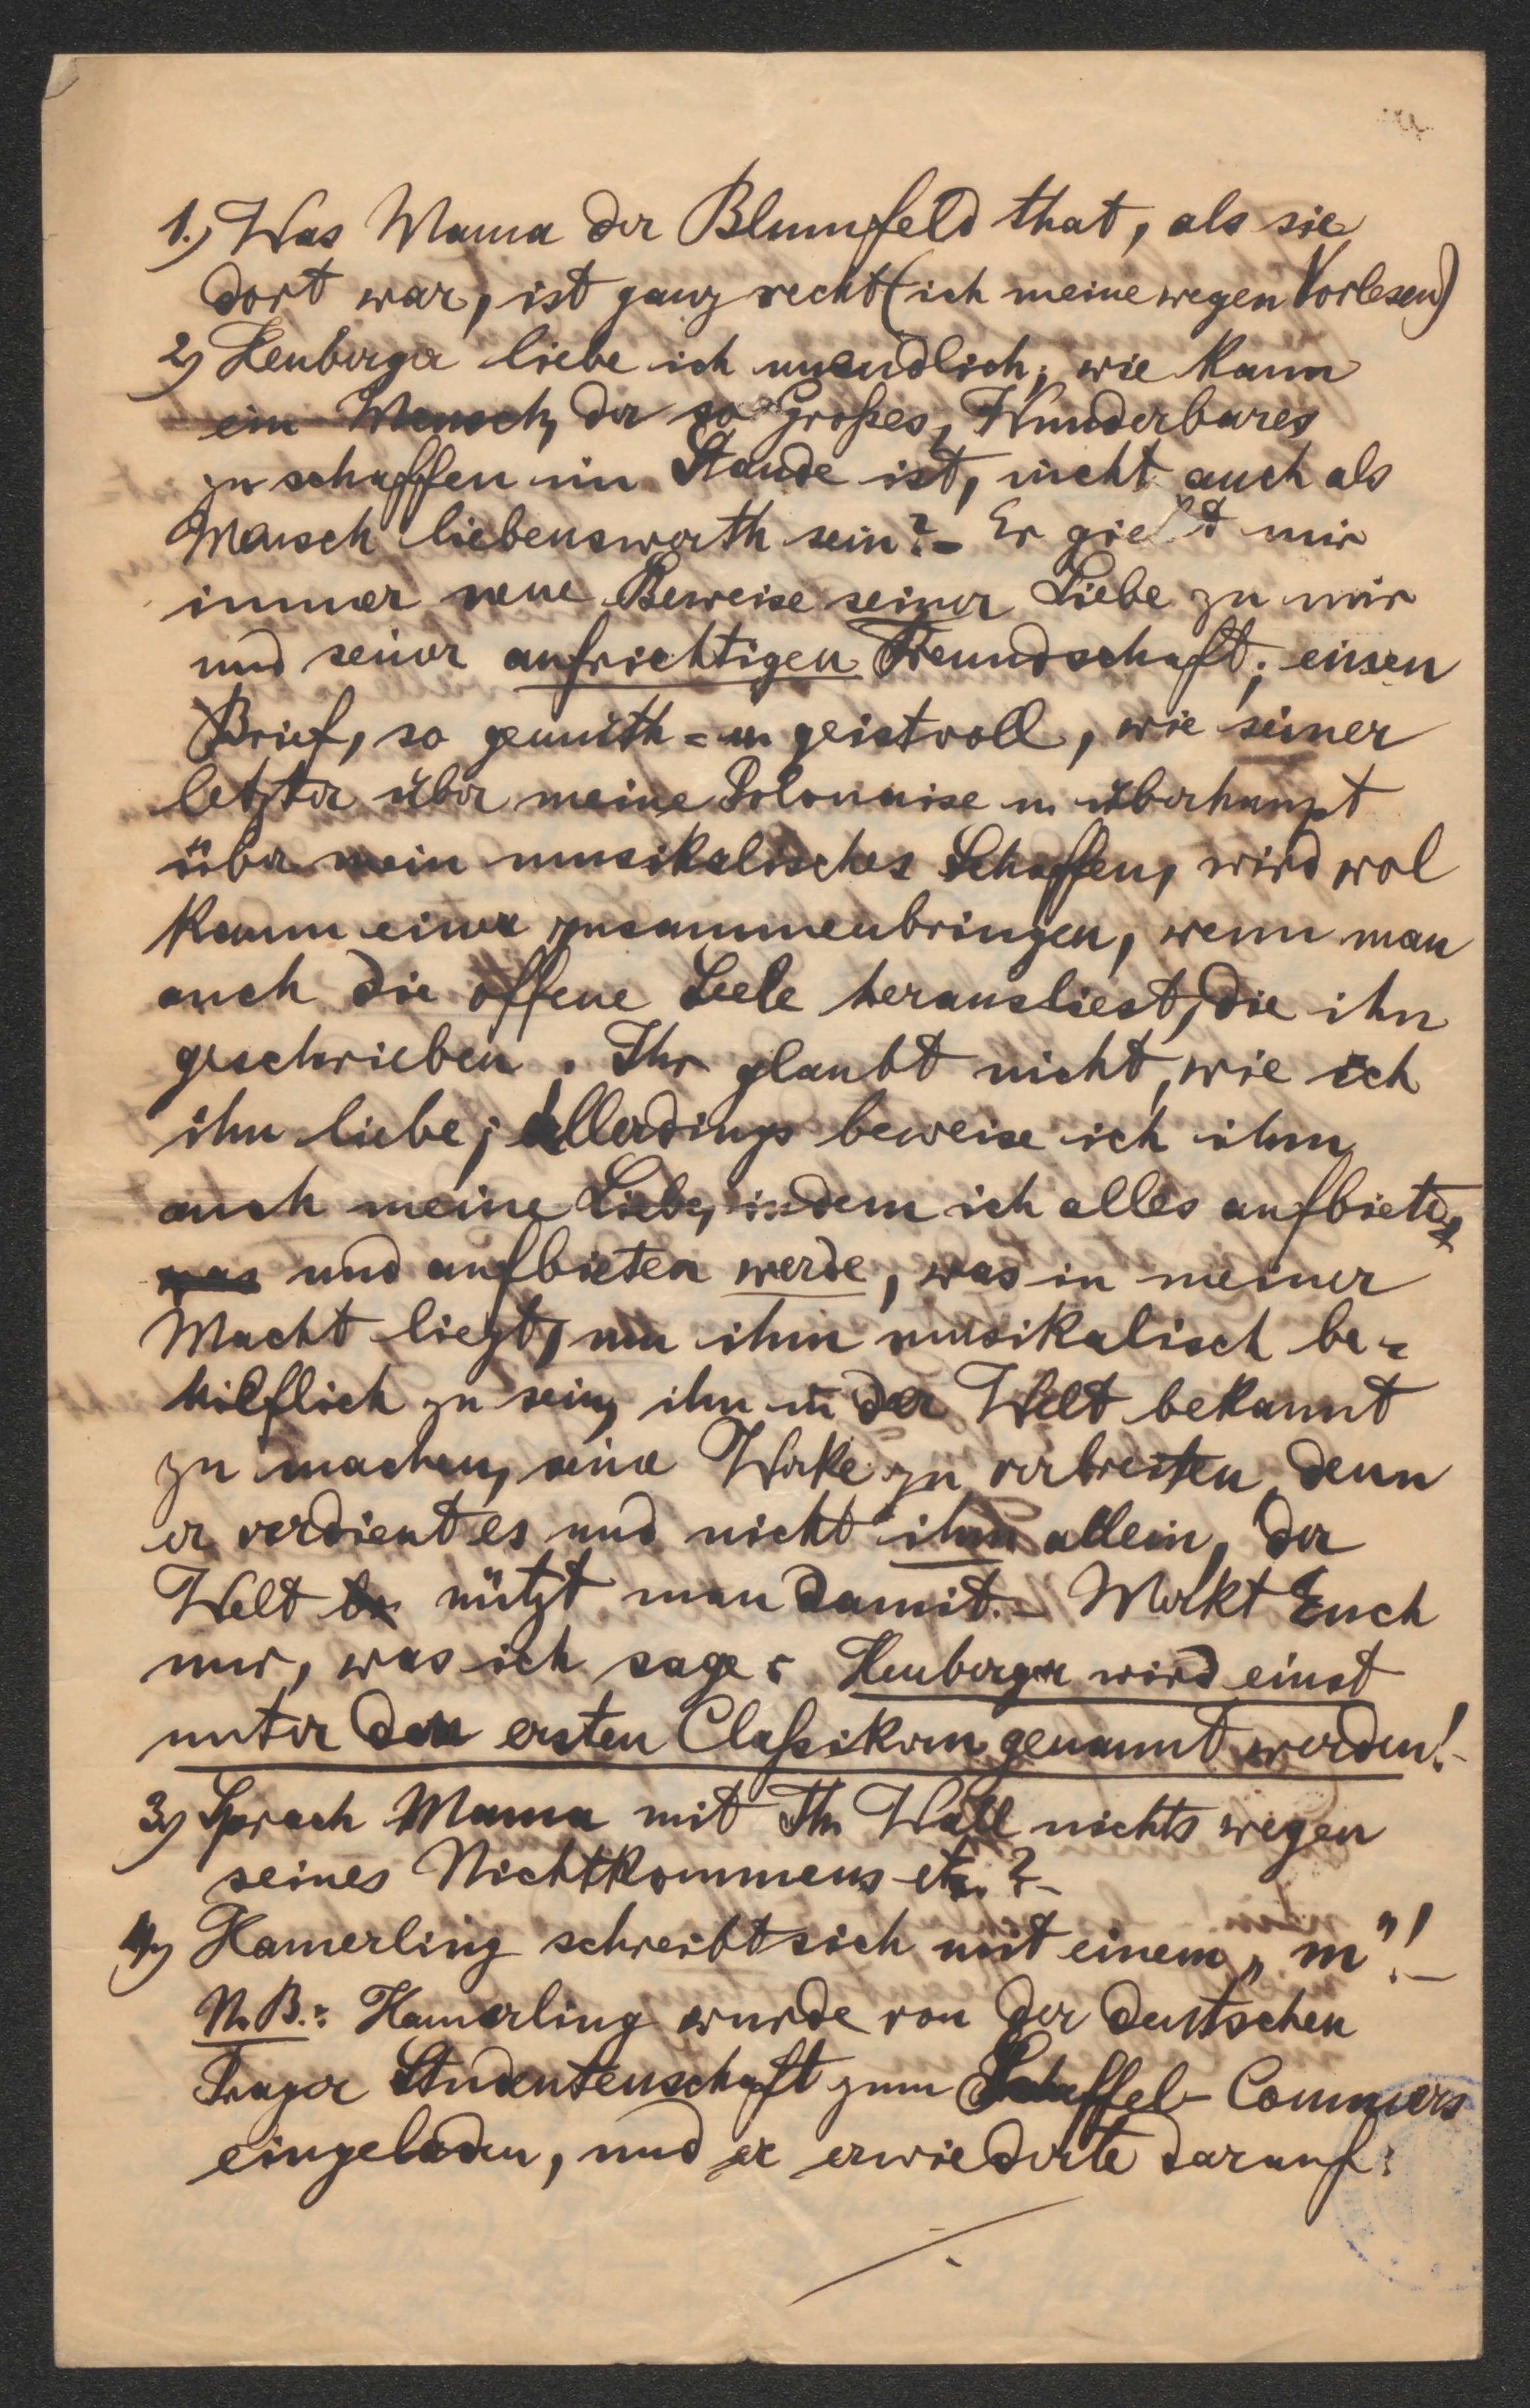 1.) Was Mama der Blumfeld that, als sie
dort war, ist ganz recht (ich meine wegen Vorlesen)
2) Heuberger liebe ich unendlich; wie kann
ein Mensch, der so Großes, Wunderbares
zu schaffen im Stande ist, nicht auch als
Mensch liebenswerth sein? – Er giebt mir
immer neue Beweise seiner Liebe zu mir
und seiner aufrichtigen Freundschaft; einen
Brief, so gemüth= u. geistvoll, wie seiner
letzter über meine Polonaise u. überhaupt
über mein musikalisches Schaffen, wird wol
kaum einer zusammenbringen, wenn man
auch die offene Seele herausliest, die ihn
geschrieben. Ihr glaubt nicht, wie ich
ihn liebe; allerdings beweise ich ihm
auch meine Liebe, indem ich alles aufbiete,
was und aufbieten werde, was in meiner
Macht liegt, um ihm musikalisch be-
hilflich zu sein, ihn in der Welt bekannt
zu machen, seine Werke zu verbreiten, denn
er verdient es und nicht ihm allein, der
Welt nützt man damit. – Merkt Euch
nur, was ich sage: Heuberger wird einst
unter den ersten Claßikern genannt werden! –
3) Sprach Mama mit Th. Wall nichts wegen
seines Nichtkommens etc.? –
4) Hamerling schreibt sich mit einem „m"! –
N.B.: Hamerling wurde von der deutschen
Prager Studentenschaft zum Scheffel-Commers
eingeladen, und er erwiederte darauf:
./.